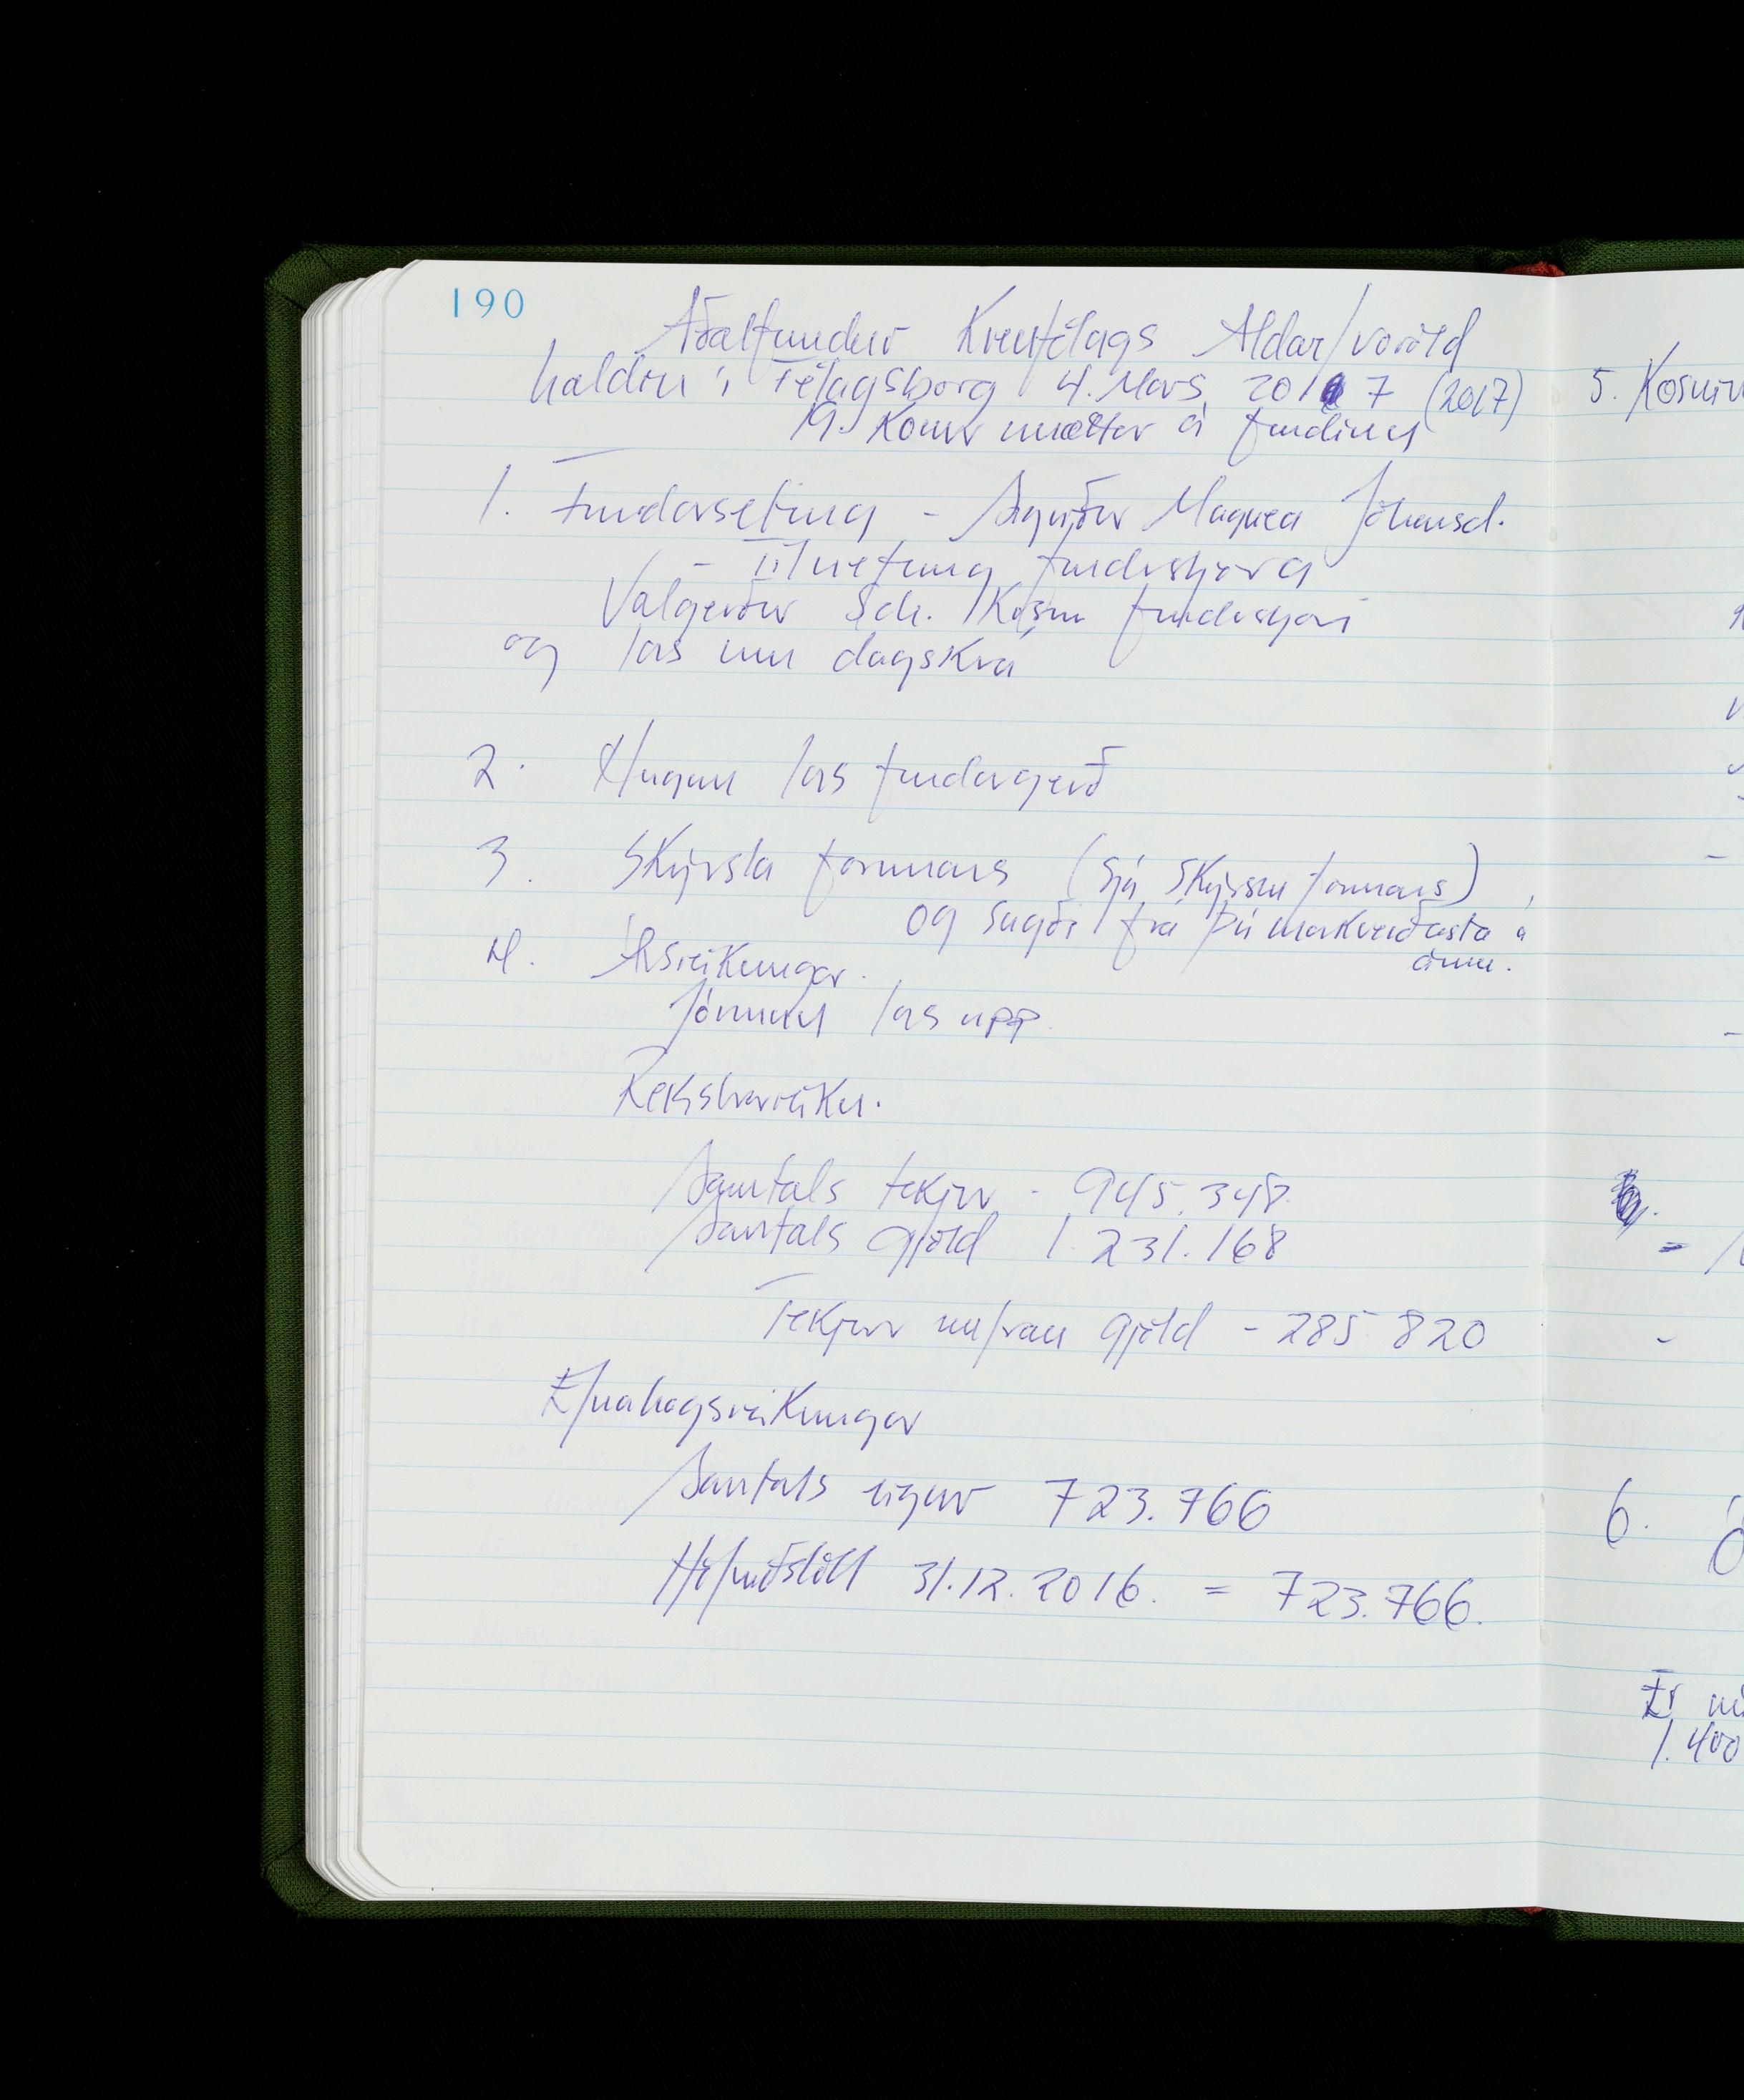 190
Aðalfundur Kvenfélags Aldan/Voröld
haldin í Félagsborg 4. Mars 2017 (2017)
19. Konur mættar á fundinn
1. Fundarseting - Sigríður Magnea Jóhansd.
- Tilnefning fundarstjóra
Valgerður Sch. Kosin fundarstjóri
og las inn dagskrá
2. las fundargerð
3. Skýrsla formans (sjá skýrslu formans)
og sagði frá því markverðasta á
árinu.
4. Ársreikningar.
Jórunn las upp
Rekstrarreikn.
Samtals tekjur - 945.348
Samtals gjöld 1.231.168
Tekjur um/fram gjöld - 285 820
Efnahagsreikningar
Samtals eignir 723.766
Höfuðstóll 31.12.2016. = 723.766.
5.
6.
Er
1.400